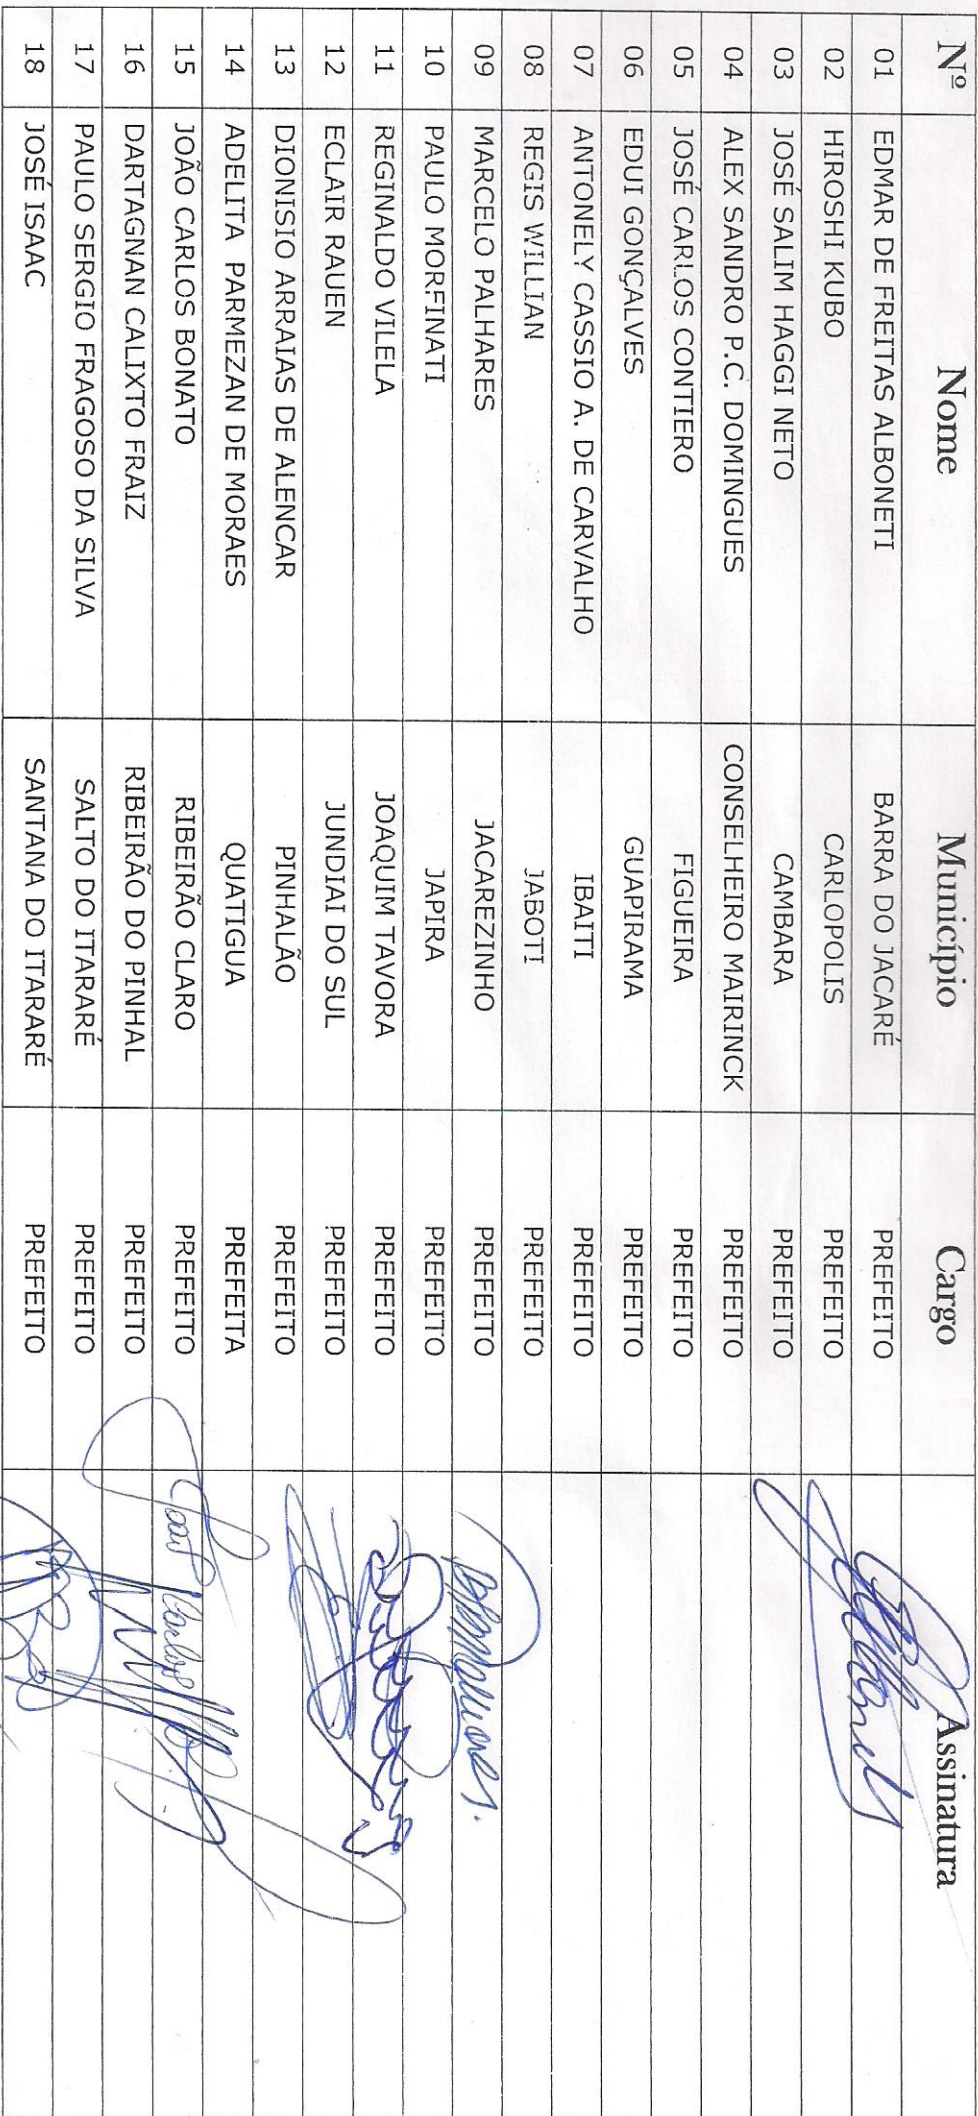 Nº Nome Município Cargo Assinatura
01 EDMAR DE FREITAS ALBONETI BARRA DO JACARÉ PREFEITO
02 HIROSHI KUBO CARLOPOLIS PREFEITO
03 JOSÉ SALIM HAGGI NETO CAMBARA PREFEITO
04 ALEX SANDRO P.C. DOMINGUES CONSELHEIRO MAIRINCK PREFEITO
05 JOSÉ CARLOS CONTIERO FIGUEIRA PREFEITO
06 EDUI GONÇALVES GUAPIRAMA PREFEITO
07 ANTONELY CASSIO A. DE CARVALHO IBAITI PREFEITO
08 REGIS WILLIAN JABOTI PREFEITO
09 MARCELO PALHARES JACAREZINHO PREFEITO
10 PAULO MORFINATI JAPIRA PREFEITO
11 REGINALDO VILELA JOAQUIM TAVORA PREFEITO
12 ECLAIR RAUEN JUNDIAI DO SUL PREFEITO
13 DIONISIO ARRAIAS DE ALENCAR PINHALÃO PREFEITO
14 ADELITA PARMEZAN DE MORAES QUATIGUA PREFEITA
15 JOÃO CARLOS BONATO RIBEIRÃO CLARO PREFEITO João Carlos
16 DARTAGNAN CALIXTO FRAIZ RIBEIRÃO DO PINHAL PREFEITO
17 PAULO SERGIO FRAGOSO DA SILVA SALTO DO ITARARÉ PREFEITO
18 JOSÉ ISAAC SANTANA DO ITARARÉ PREFEITO